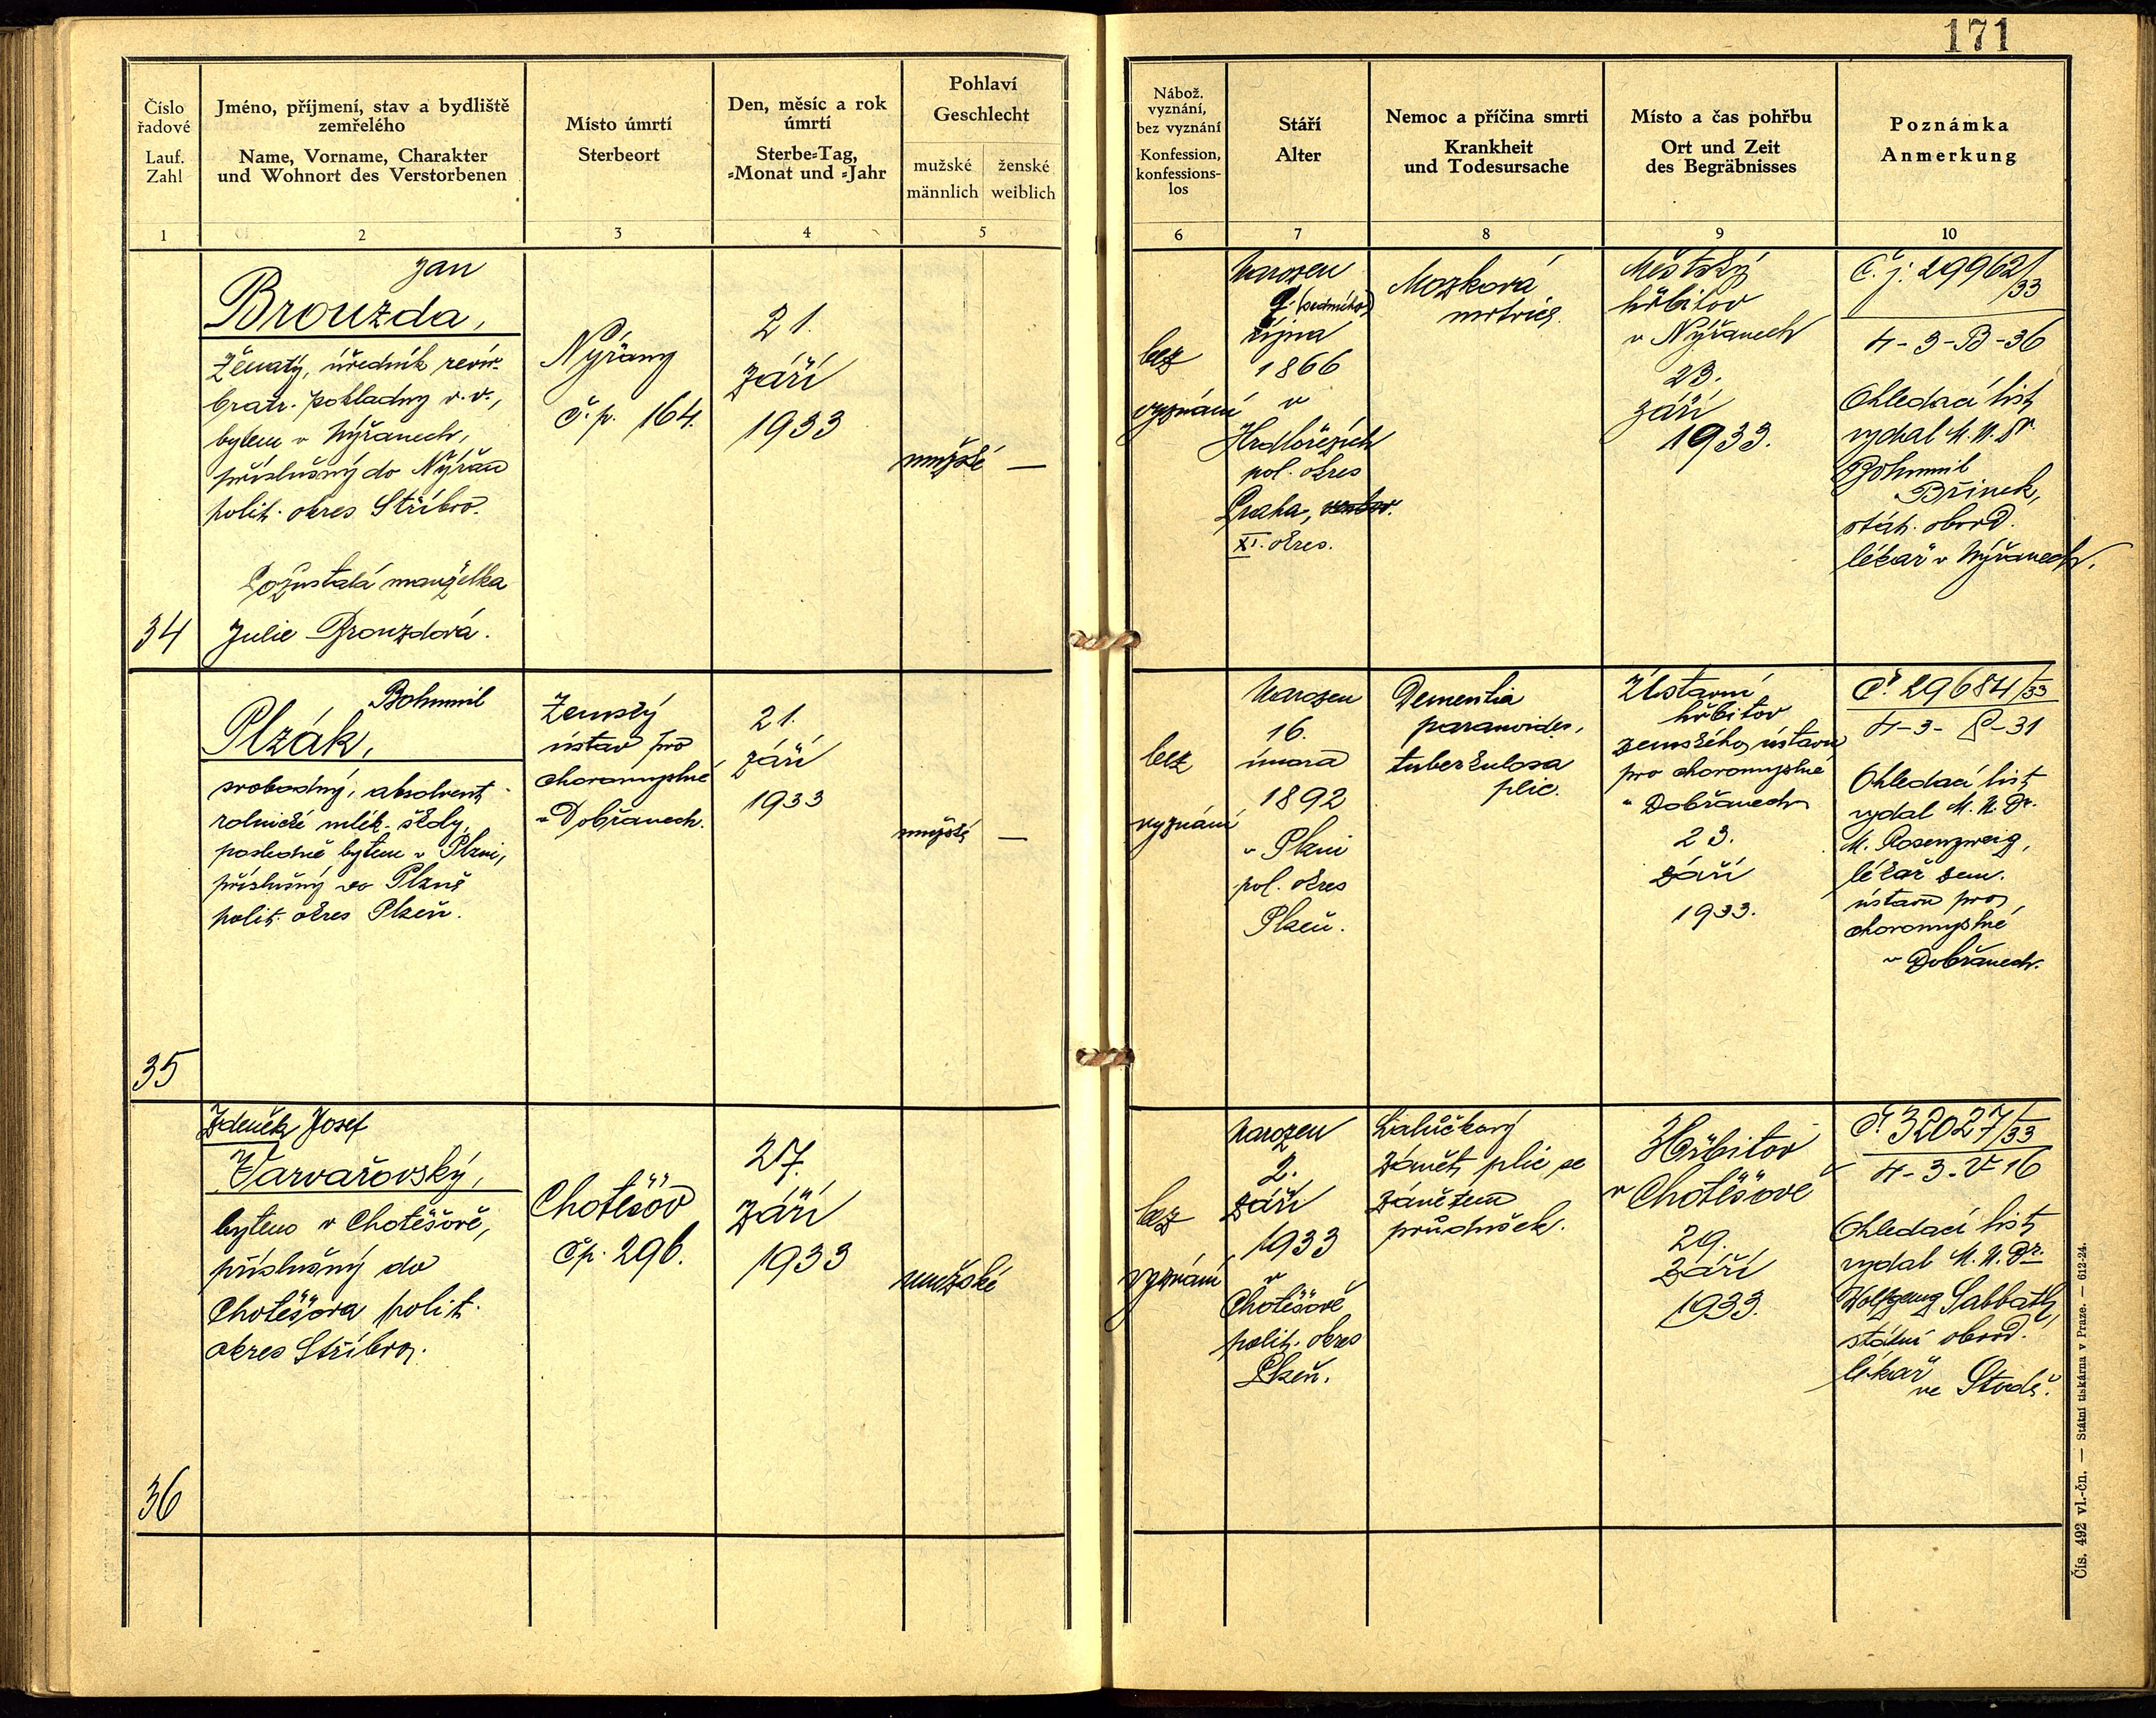 171
Číslo
řadové
Lauf.
Zahl
Jméno, příjmení, stav a bydliště
zemřelého
Name, Vorname, Charakter
und Wohnort des Verstorbenen
Místo úmrtí
Sterbeort
Den, měsíc a rok
úmrtí
Sterbe=Tag,
=Monat und =Jahr
Pohlaví
Geschlecht
mužské
männlich
ženské
weiblich
Nábož.
vyznání,
bez vyznání
Konfession,
konfessions-
los
Stáří
Alter
Nemoc a příčina smrti
Krankheit
und Todesursache
Místo a čas pohřbu
Ort und Zeit
des Begräbnisses
Poznámka
Anmerkung
1 2 3 4 5 6 7 8 9 10
34
Jan
Brouzda,
Ženatý, úředník revír.
bratr. pokladny v. v.,
bytem v Nýřanech,
příslušný do Nýřan
polit. okres Stříbro.
Pozůstalá manželka
Julie Brouzdová.
Nýřany
č. p. 164.
21.
září
1933
mužské —
bez
vyznání
Narozen
7. (sedmého)
října
1866
v
Hrdlořezích
pol. okres
Praha, venkov.
XI. okres.
Mozková
mrtvice.
Městský
hřbitov
v Nýřanech
23.
září
1933.
Č. j. 29962/
/33
4-3-B-36
Ohledací list
vydal M. U. Dr
Bohumil
Břinek,
stát. obvod.
lékař v Nýřanech.
35
Bohumil
Plzák,
svobodný, absolvent
rolnické mlék. školy,
posledně bytem v Plzni,
příslušný do Plzně
polit. okres Plzeň.
Zemský
ústav pro
choromyslné
v Dobřanech.
21.
září
1933
mužské —
bez
vyznání
Narozen
16.
února
1892
v Plzni
pol. okres
Plzeň.
Dementia
paranoides,
tuberkulosa
plic.
Ústavní
hřbitov
zemského ústavu
pro choromyslné
v Dobřanech
23.
září
1933.
Č. 29684/33
4-3- P-31
Ohledací list
vydal M. U. Dr.
M. Rosenzweig,
lékař zem.
ústavu pro
choromyslné
v Dobřanech.
36
Zdeněk Josef
Varvařovský,
bytem v Chotěšově,
příslušný do
Chotěšova polit.
okres Stříbro.
Chotěšov
čp. 296.
27.
září
1933
mužské
bez
vyznání
Narozen
2.
září
1933
v
Chotěšově
polit. okres
Plzeň.
Zánět plic se
zánětem
průdušek.
Hřbitov
v Chotěšově
29.
září
1933.
Č. 32027/33
4-3-V-16
Ohledací list
vydal M. U. Dr.
Wolfgang Sabbath,
státní obvod.
lékař
ve Stodě.
Čís. 492 vl.-čn. — Státní tiskárna v Praze. — 612-24.